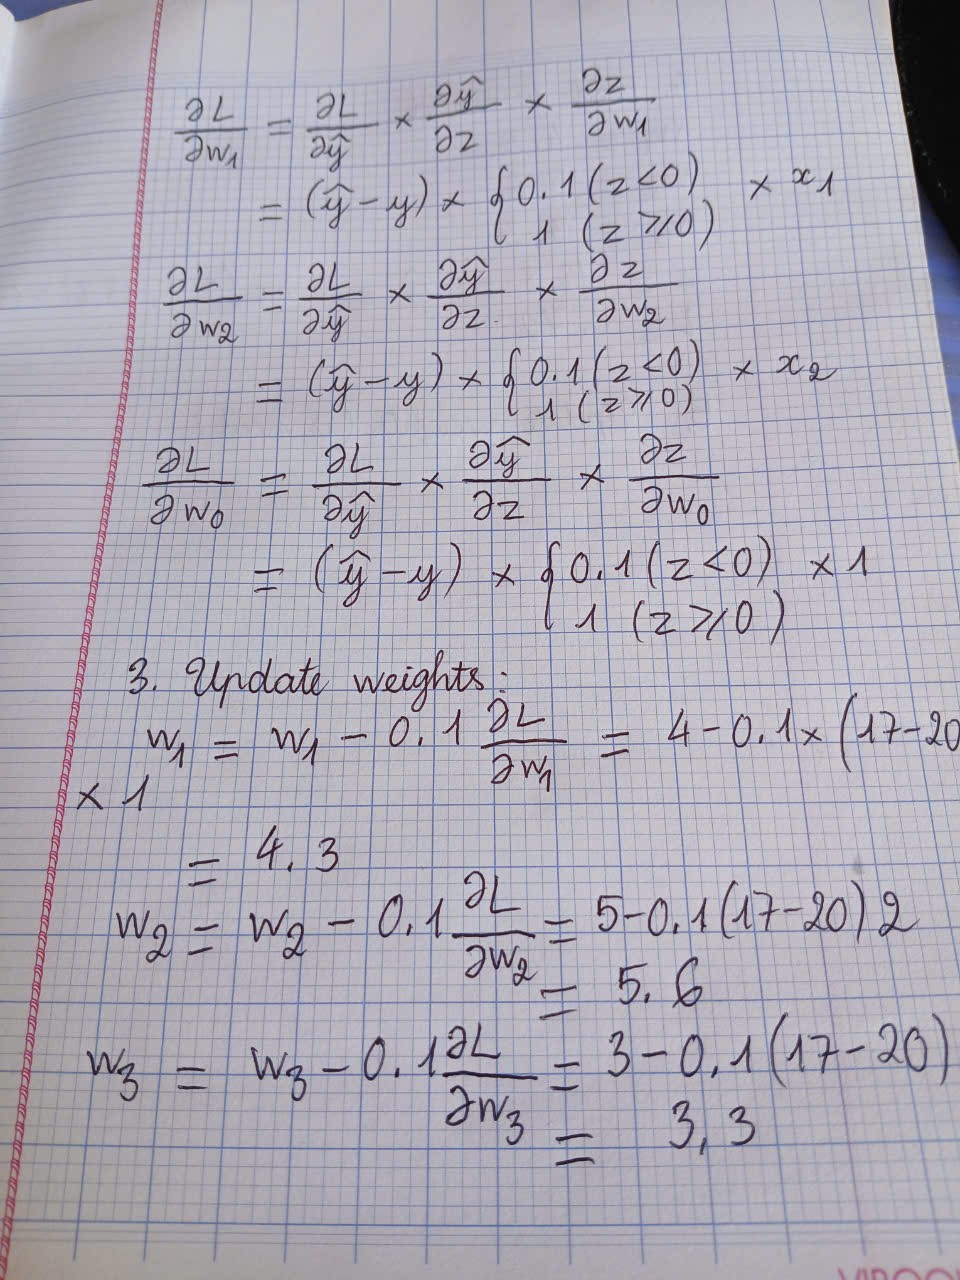 ∂L/∂w1 = ∂L/∂ŷ × ∂ŷ/∂z × ∂z/∂w1
= (ŷ - y) × { 0.1 (z < 0) × x1
1 (z ≥ 0)
∂L/∂w2 = ∂L/∂ŷ × ∂ŷ/∂z × ∂z/∂w2
= (ŷ - y) × { 0.1 (z < 0) × x2
1 (z ≥ 0)
∂L/∂w0 = ∂L/∂ŷ × ∂ŷ/∂z × ∂z/∂w0
= (ŷ - y) × { 0.1 (z < 0) × 1
1 (z ≥ 0)
3. Update weights:
w1 = w1 - 0.1 ∂L/∂w1 = 4 - 0.1 × (17 - 20
× 1
= 4.3
w2 = w2 - 0.1 ∂L/∂w2 = 5 - 0.1 (17 - 20) 2
= 5.6
w3 = w3 - 0.1 ∂L/∂w3 = 3 - 0.1 (17 - 20)
= 3,3